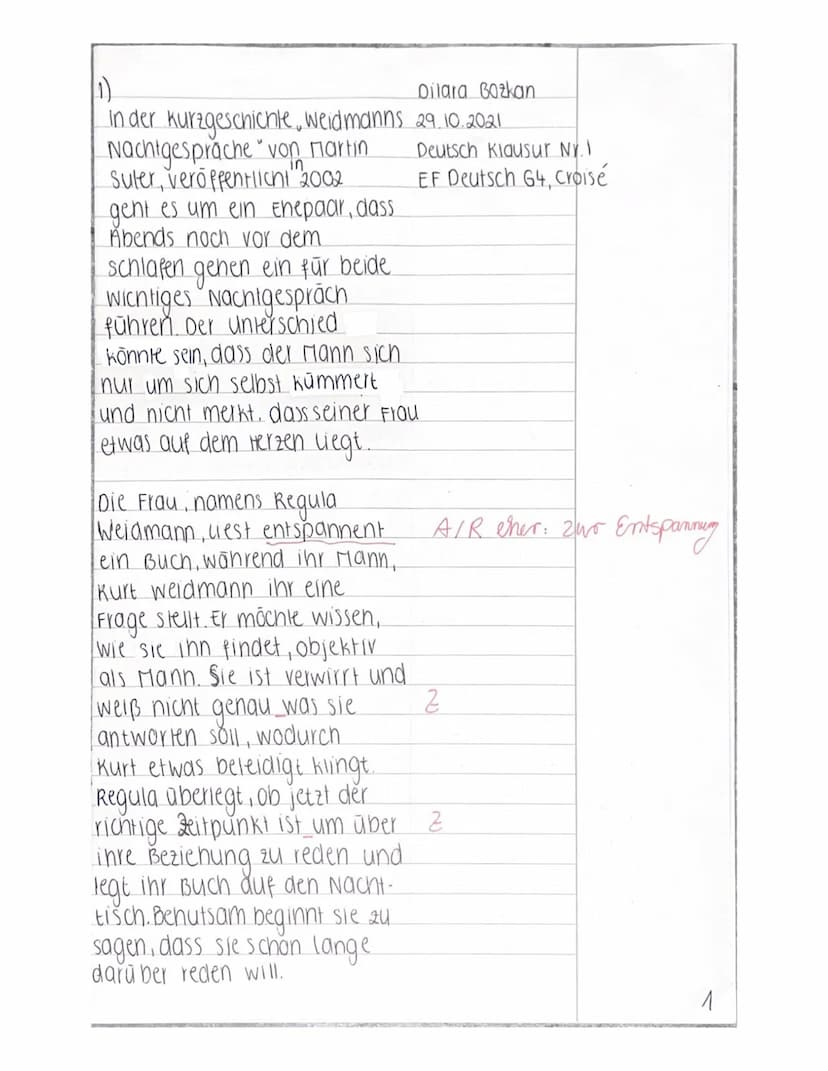 1)
Dilara Bozkan
In der Kurzgeschichte „Weidmanns
29.10.2021
Nachtgespräche" von Martin
Deutsch Klausur Nr.1
Suter, veröffentlicht in 2002
EF Deutsch G4, Croisé
geht es um ein Ehepaar, dass
Abends noch vor dem
schlafen gehen ein für beide
wichtiges Nachtgespräch
führen. Der Unterschied
könnte sein, dass der Mann sich
nur um sich selbst kümmert
und nicht merkt, dass seiner Frau
etwas auf dem Herzen liegt.
Die Frau, namens Regula
Weidmann, liest entspannent
A/R eher: zur Entspannung
ein Buch, während ihr Mann,
Kurt Weidmann ihr eine
Frage stellt. Er möchte wissen,
wie sie ihn findet, objektiv
als Mann. Sie ist verwirrt und
weiß nicht genau_was sie
Z
antworten soll, wodurch
Kurt etwas beleidigt klingt.
Regula überlegt, ob jetzt der
richtige Zeitpunkt ist_um über
Z
ihre Beziehung zu reden und
legt ihr Buch auf den Nacht-
tisch. Behutsam beginnt sie zu
sagen, dass sie schon lange
darüber reden will.
1